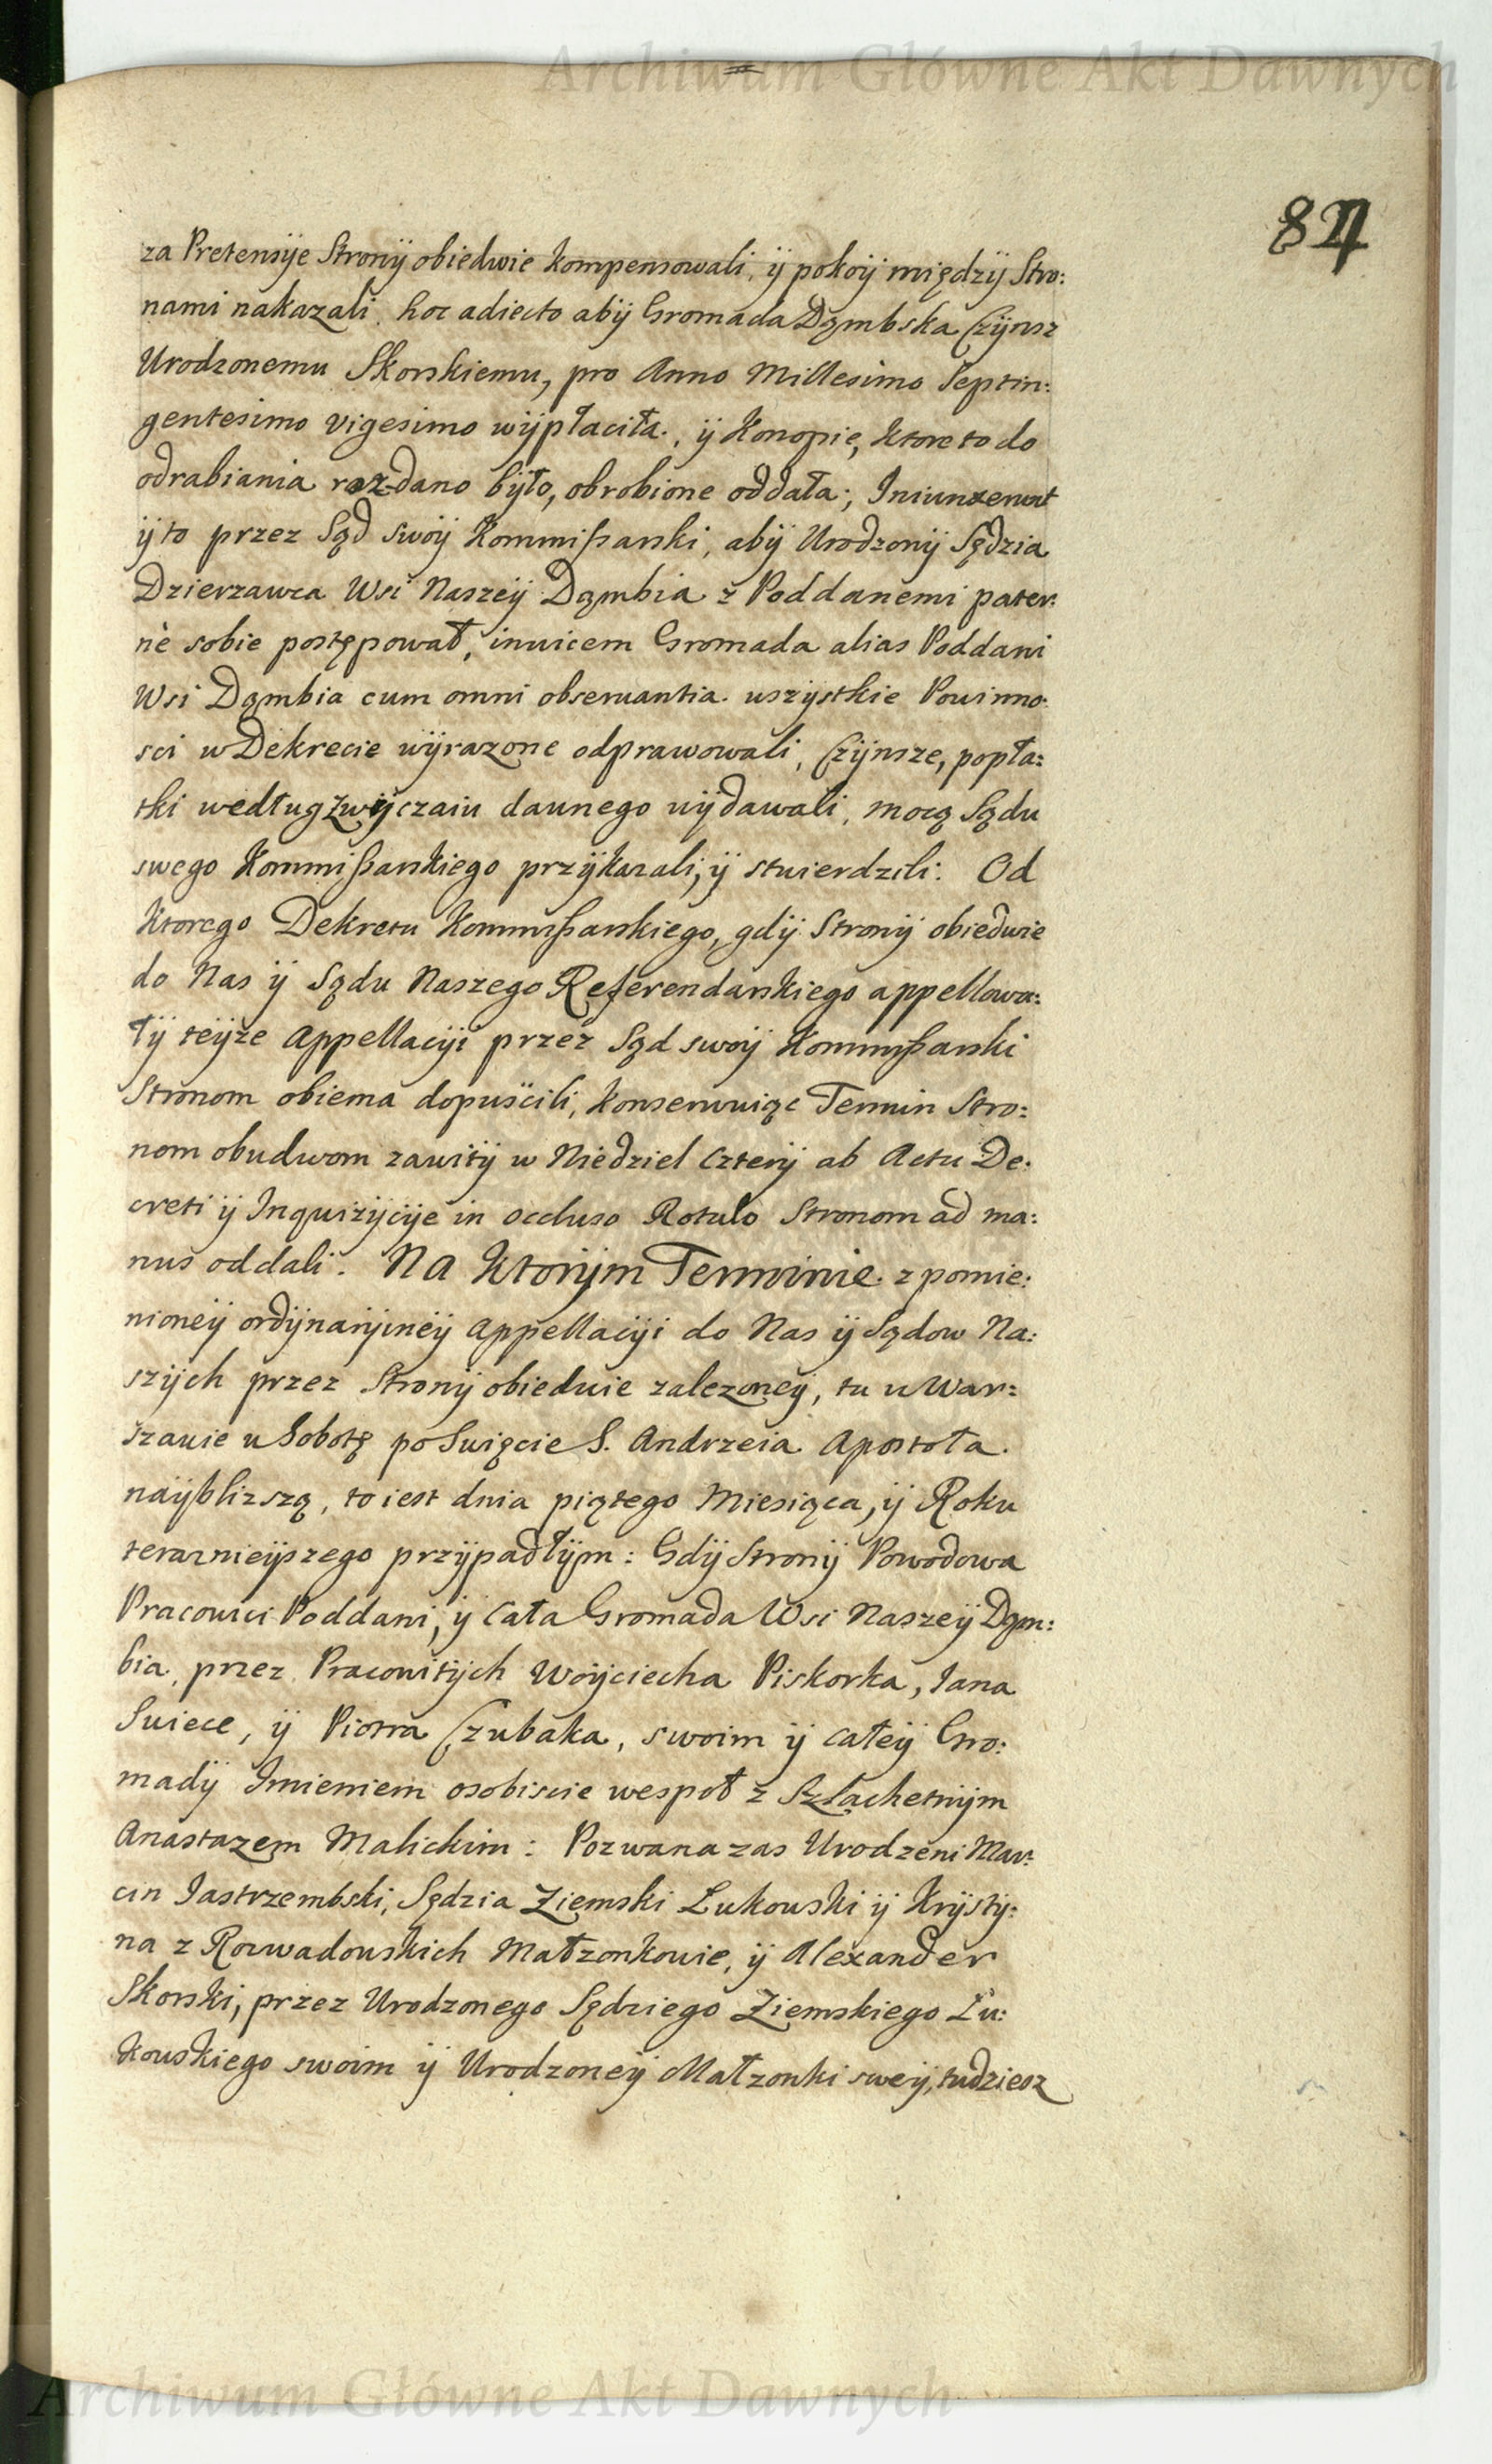 Archiwum Główne Akt Dawnych
84
za Pretensÿe Stronÿ obiedwie kompensowali, ÿ pokoÿ międzÿ Stro:
nami nakazali. hoc adiecto abÿ Gromada Dąmbska Czÿnsz
Urodzonemu Skorskiemu, pro Anno Millesimo Septin:
gentesimo vigesimo wÿpłaciła, ÿ Konopie, ktore to do
odrabiania rozdano bÿło, obrobione oddała; Iniunxerunt
ÿ to przez Sąd swoÿ Kommißarski, abÿ Urodzonÿ Sędzia
Dzierzawca Wsi Naszeÿ Dąmbia z Poddanemi pater:
nè sobie postępował, inuicem Gromada alias Poddani
Wsi Dąmbia cum omni obseruantia uszÿstkie Powinno:
sci w Dekrecie wÿrazone odprawowali, Czÿnsze, popła:
tki według zwÿczaiu daunego uÿdawali, mocą Sądu
swego Kommißarskiego przÿkazali, ÿ stuierdzili. Od
ktorego Dekretu Kommißarskiego, gdÿ Stronÿ obiedwie
do Nas ÿ Sądu Naszego Referendarskiego appellowa:
łÿ teÿże Appellacÿi przez Sąd swoÿ Kommißarski
Stronom obiema dopuścili, konseruuiąc Termin Stro:
nom obudwom zawitÿ w Niedziel czterÿ ab Actu De:
creti ÿ Inquizÿcÿe in occluso Rotulo Stronom ad ma:
nus oddali. Na ktorÿm Terminie z pomie:
nioneÿ ordÿnarÿineÿ Appellacÿi do Nas ÿ Sądow Na:
szÿch przez Stronÿ obieduie zalezoneÿ, tu u War:
szauie u Sobotę po Suięcie S. Andrzeia Apostoła
naÿblizszą, to iest dnia piątego Miesiąca, ÿ Roku
teraznieÿszego przÿpadłÿm: Gdÿ Stronÿ Powodowa
Pracouici Poddani, ÿ cała Gromada Wsi Naszeÿ Dąm:
bia, przez Pracowitÿch Woÿciecha Piskorka, Iana
Suiece, ÿ Piotra Czubaka, swoim ÿ całeÿ Gro:
madÿ Imieniem osobiscie wespoł z Szlachetnÿm
Anastazem Malickim: Pozwana zas Urodzeni Mar:
cin Iastrzembski, Sędzia Ziemski Łukouski ÿ Krÿstÿ:
na z Rozwadouskich Małzonkouie, ÿ Alexander
Skorski, przez Urodzonego Sędziego Ziemskiego Łu:
kouskiego swoim ÿ Urodzoneÿ Małzonki sweÿ, tudziesz
Archiwum Główne Akt Dawnych